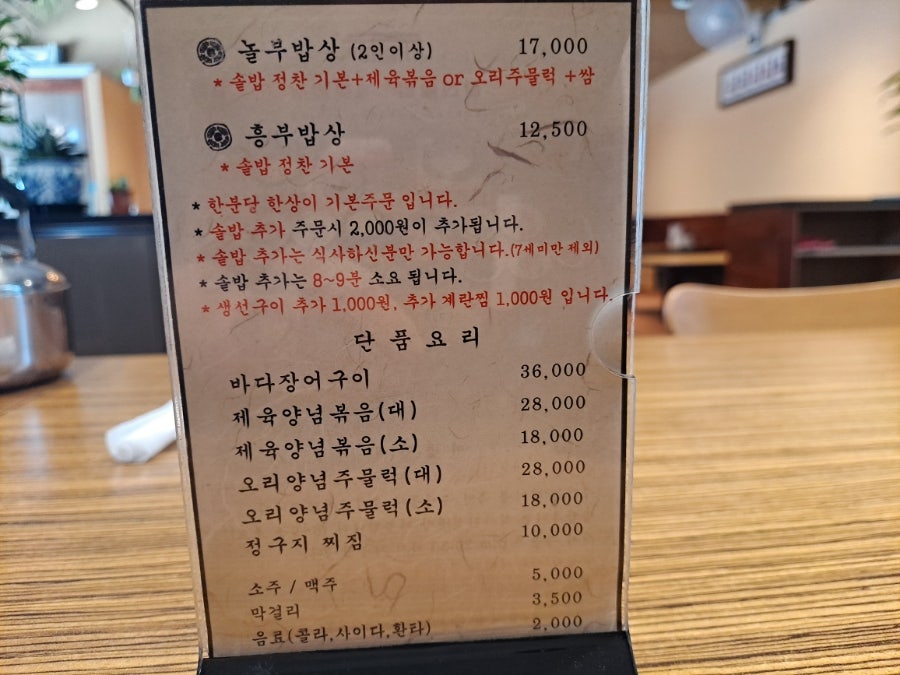 놀부밥상 (2인이상) 17,000
* 솥밥 정찬 기본+제육볶음 or 오리주물럭 +쌈
흥부밥상 12,500
* 솥밥 정찬 기본
* 한분당 한상이 기본주문 입니다.
* 솥밥 추가 주문시 2,000원이 추가됩니다.
* 솥밥 추가는 식사하신분만 가능합니다.(7세미만 제외)
* 솥밥 추가는 8~9분 소요 됩니다.
* 생선구이 추가 1,000원, 추가 계란찜 1,000원 입니다.
단 품 요 리
바다장어구이 36,000
제육양념볶음(대) 28,000
제육양념볶음(소) 18,000
오리양념주물럭(대) 28,000
오리양념주물럭(소) 18,000
정구지 찌짐 10,000
소주 / 맥주 5,000
막걸리 3,500
음료(콜라,사이다,환타) 2,000